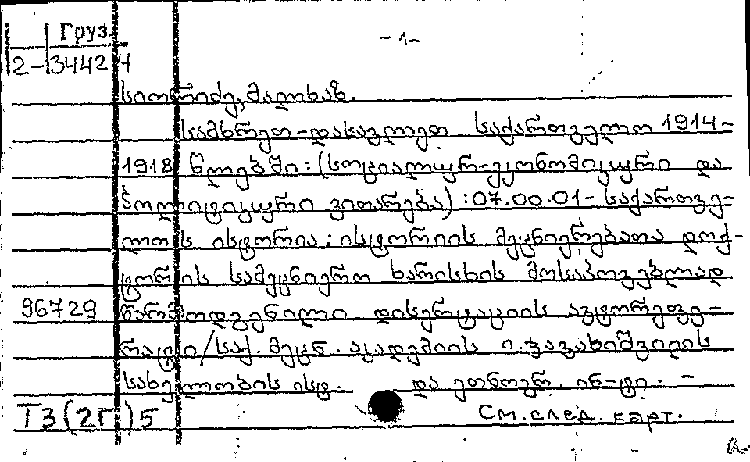 Груз.
-1-
2-34424
სიორიძე, მალხაზ.
სამხრეთ-დასავლეთ საქართველო 1914-
1918 წლებში: (სოციალურ-ეკონომიკური და
პოლიტიკური ვითარება): 07.00.01 - საქართვე-
ლოს ისტორია: ისტორიის მეცნიერებათა დოქ-
ტორის სამეცნიერო ხარისხის მოსაპოვებლად
96729 წარმოდგენილი დისერტაციის ავტორეფე-
რატი/საქ. მეცნ. აკადემიის ი. ჯავახიშვილის
სახელობის ისტ. და ეთნოგრ. ინ-ტი. -
Т3(2Г)5 См. след. карт.